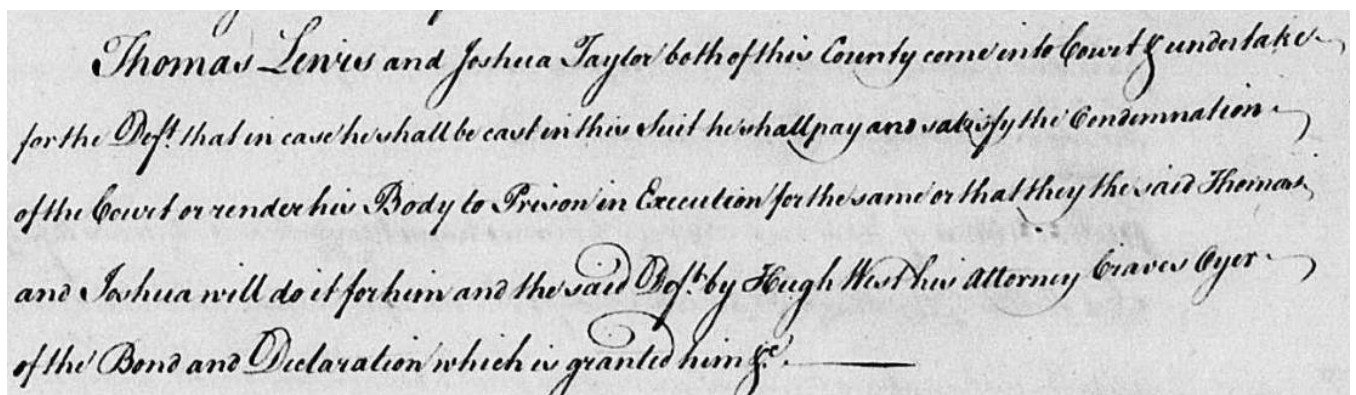 Thomas Lewis and Joshua Taylor both of this County come into Court & undertake
for the Deft. that in case he shall be cast in this Suit he shall pay and satisfy the Condemnation
of the Court or render his Body to Prison in Execution for the same or that they the said Thomas
and Joshua will do it for him and the said Deft. by Hugh West his Attorney Craves Oyer
of the Bond and Declaration which is granted him &c.